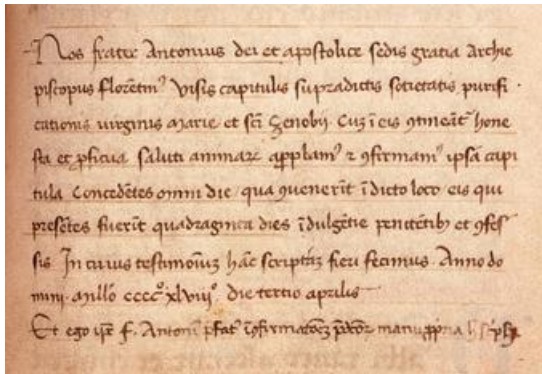 Nos frater Antonius dei et apostolice sedis gratia Archie
piscopus florētinꝰ visis capitulis supradictis societatis purifi
cationis virginis Marie et scī Zenobij. Cuȝ ī eis ꝯtineāt hone
sta et ꝓficua saluti animaꝝ applamꝰ ⁊ ꝯfirmamꝰ ipsā capi
tula Concedētes omni die qua ꝯuenerīt ī dicto loco eis qui
presētes fuerīt quadraginta dies īdulgētie penitētibꝫ et ꝯfes
sis In cuius testimoniuȝ hāc scriptāȝ fieri fecimus Anno do
mini Millō ccccº xlviijº die tertio aprilis
Et ego ip̄e f. Antoniꝰ p̄fatꝰ manu ꝓpria